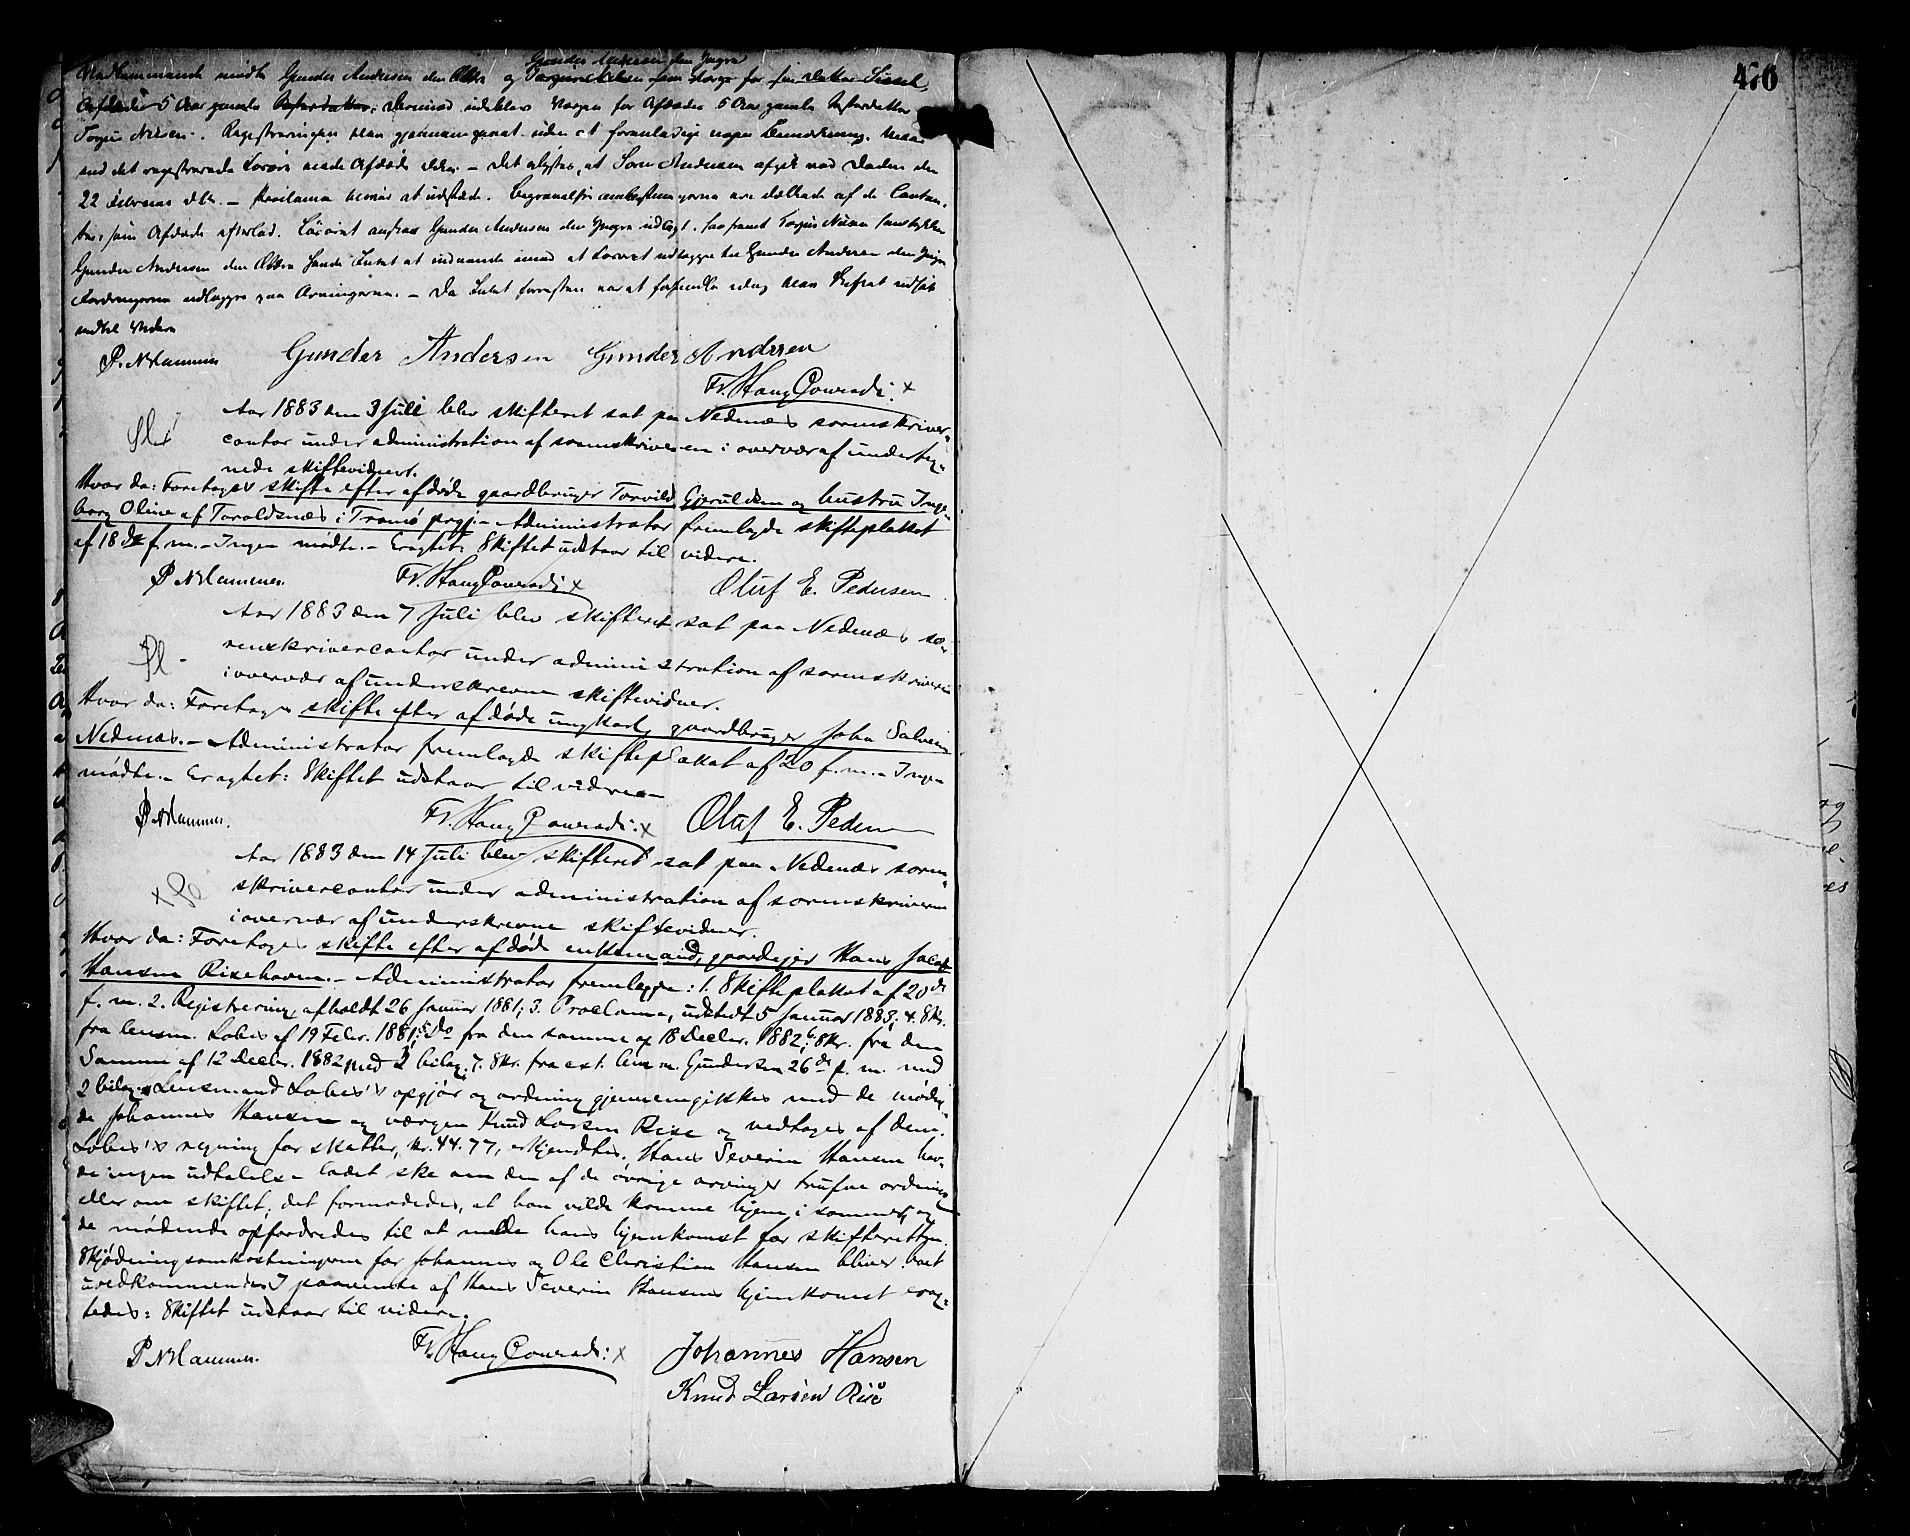 Gunder Andersen den Yngre
Vedkommende mødte Gunder Andersen den Ældre og for sin Datter Sissel,
Afdødes 5 Aar gamle Derimod udeblev Værgen for Afdødes 5 Aar gamle Søsterdatter
Torjus Nilsen. Registreringen blev gjennemgaaet uden at foranledige nogen Bemærkning.
end det registrerede Løsøre eiede Afdøde ikke. – Det oplystes, at Søren Andersen afgik ved Døden den
22 Februar – Proclama besluttedes at udstede. Begravelsesomkostningerne ere dækkede af de Contan-
ter, som Afdøde efterlod. Løsøret ønskes Gunder Andersen den Yngre udlagt, saafremt Torjus Nilsen samtykker.
Gunder Andersen den Ældre havde Intet at indvende imod at Løsøret udlægges til Gunder Andersen den Yngre
Fordringerne udlægges paa Arvingerne. – Da Intet forresten var at foretage idag blev Skiftet udsat
indtil Videre
P. N. Hammer Gunder Andersen Gunder Andersen
Fr. Haug Conradi: x
Aar 1883 den 3 Juli blev skifteret sat paa Nedenæs sorenskriver-
contor under administration af sorenskriveren i overvær af underteg-
nede skiftevidner.
Hvor da: Foretoges skifte efter afdøde gaardbruger Torvild Gjeruldsen og hustru Inge-
borg Oline af Toroldsnæs i Tromø prgj. – Administrator fremlagde skifteplakat
af 18de f. m. – Ingen mødte. – Eragtet: Skiftet udstaar til videre.
P N Hammer. Fr. Haug Conradi x Oluf E. Pedersen
Aar 1883 den 7 Juli blev skifteret sat paa Nedenæs so-
renskrivercontor under administration af sorenskriveren
i overvær af underskrevne skiftevidner.
Hvor da: Foretoges skifte efter afdøde ungkarl, gaardbruger John Salvesen
Nedenæs. – Administrator fremlagde skifteplakat af 20 f. m. – Ingen
mødte. – Eragtet: Skiftet udstaar til videre –
P N Hammer. Fr. Haug Conradi: x Oluf E. Pedersen
Aar 1883 den 14 Juli blev skifteret sat paa Nedenæs soren-
skrivercontor under administration af sorenskriveren
i overvær af underskrevne skiftevidner.
Hvor da: Foretoges skifte efter afdøde enkemand, gaardejer Hans Jacob
Hansen Risehavn. – Administrator fremlagde: 1. Skifteplakat af 20de
f. m. 2. Registrering, afholdt 26 Januar 1881; 3. Proclama, udstedt 5 Januar 1883; 4. Skr.
fra lensm. Lobes af 19 Febr. 1881; 5 do fra den samme af 18 Decbr. 1882; 6 Skr. fra den
Samme af 12 Decbr. 1882 med 3 bilag, 7. Skr. fra ext. lensm. Gundersen 26de f. m. med
2 bilag. Lensmand Lobes's opgjør og ordning gjennemgikkes med de møden-
de Johannes Hansen og værgen Knud Larsen Rise og vedtoges af dem.
Lobes's regning for skatter, kr. 44.77, erkjendtes. Hans Severin Hansen hav-
de ingen udtalelse ladet ske om den af de øvrige arvinger trufne ordning
eller om skiftet; det formodedes, at han vilde komme hjem i sommer, og
de mødende opfordredes til at melde hans hjemkomst for skifteretten.
Skjødningsomkostningerne for Johannes og Ole Christian Hansen bliver boet
uvedkommende. I paavente af Hans Severin Hansens hjemkomst erag-
tedes: Skiftet udstaar til videre.
P N Hammer. Fr. Haug Conradi: x Johannes Hansen
Knud Larsen Rise
470